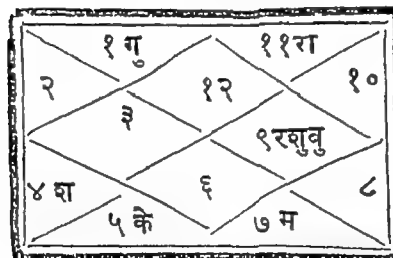 १ गु ११रा
२ १२ १०
३
९रशुवु
४ श ६ ८
५ के ७ म